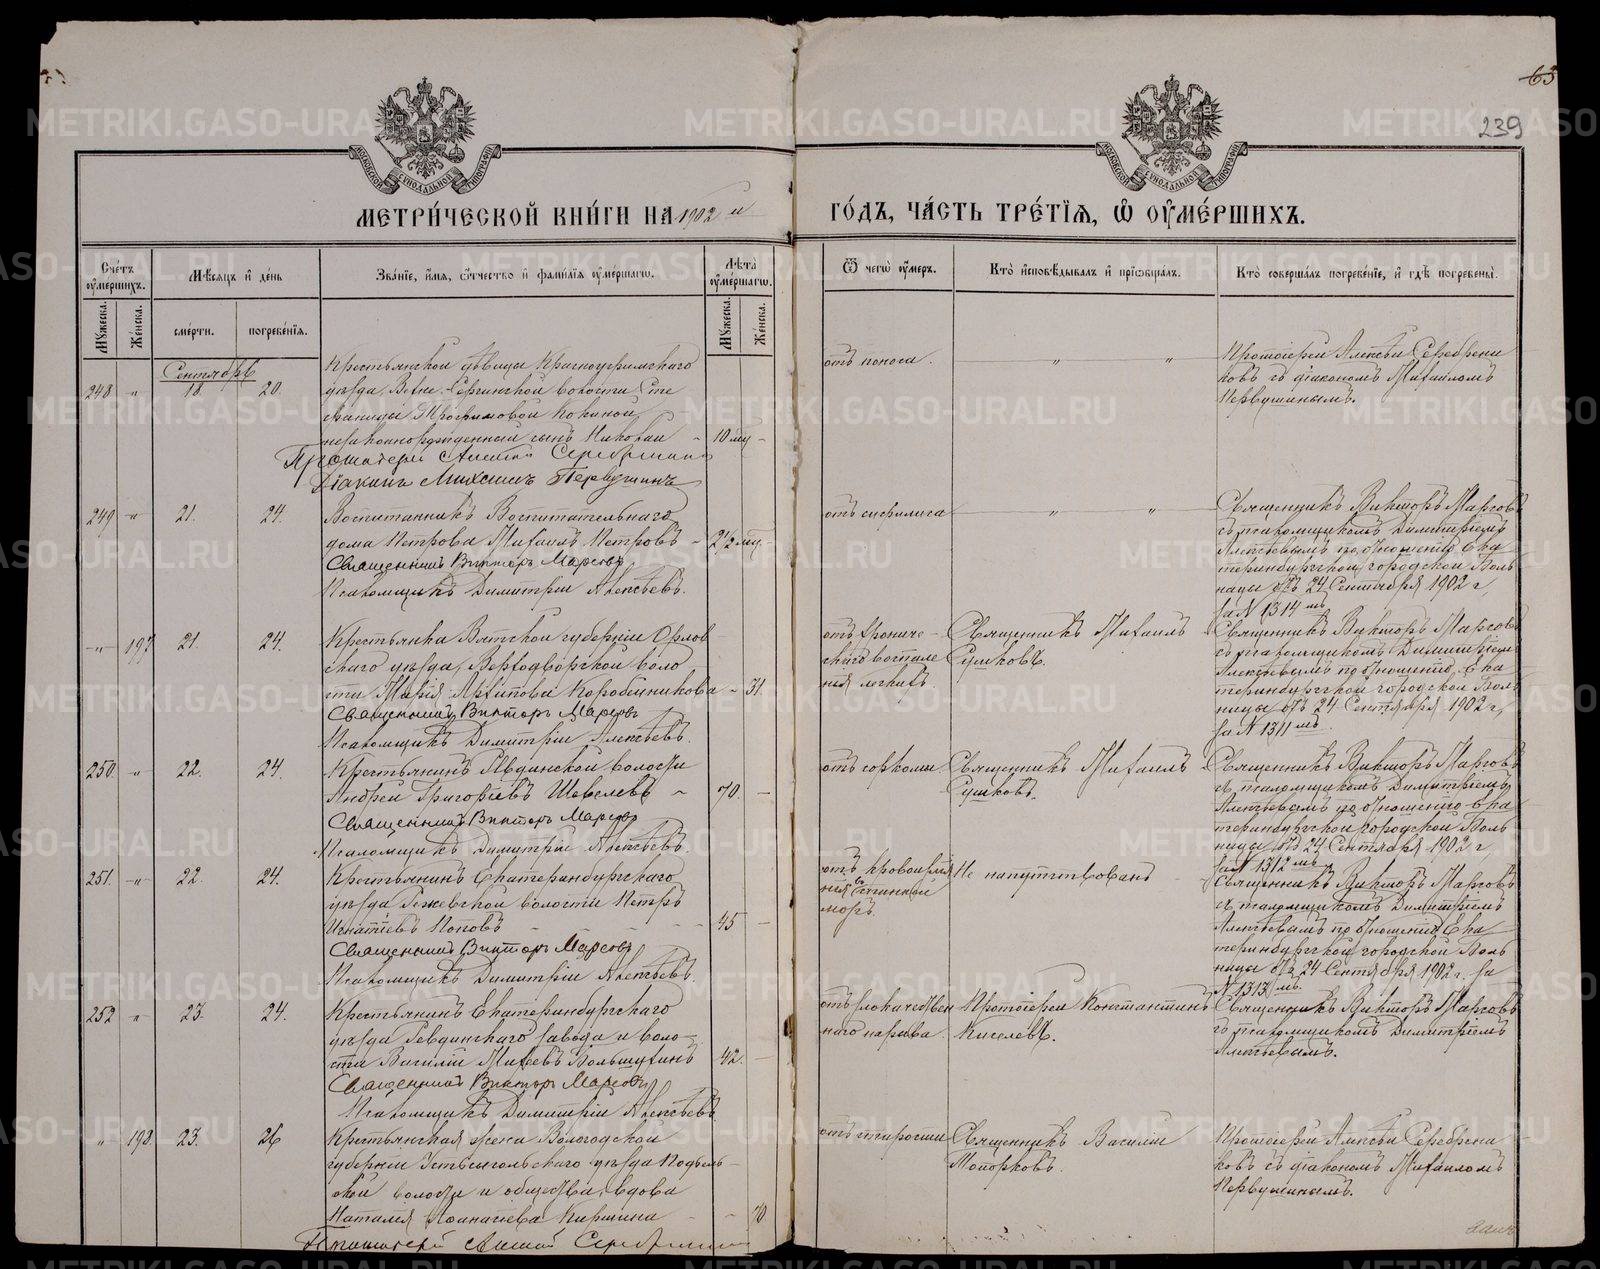 65
239
МЕТРИ́ЧЕСКОЙ КНИ́ГИ НА 1902 й
ГО́ДЪ, ЧА́СТЬ ТРЕ́ТІѦ, Ѡ҆ ОУ҆МЕ́РШИХЪ.
Сче́тъ оу҆ме́ршихъ.
Мѣ́сѧцъ и҆ де́нь
Зва́нїе, и҆́мѧ, ѻ҆́тчество и҆ фами́лїѧ оу҆ме́ршагѡ.
Лѣ́та оу҆ме́ршагѡ.
Ѿ чегѡ̀ оу҆́меръ.
Кто̀ и҆сповѣ́дывалъ и҆ прїѡбща́лъ.
Кто̀ соверша́лъ погребе́нїе, и҆ гдѣ̀ погребены̀.
Му́жеска.
Же́нска.
сме́рти.
погребе́нїѧ.
Му́жеска.
Же́нска.
Сентябрь
248 „ 18. 20.
Крестьянской дѣвицы Красноуфимскаго
уѣзда, Верхн.-Сергинской волости Сте
фаниды Трофимовой Кокиной
незаконнорожденный сынъ Николай - 10 мц -
Протоіерей Алексій Серебрениковъ
Діаконъ Михаилъ Первушинъ
отъ поноса.
„ „
Протоіерей Алексѣй Серебрени
ковъ съ діакономъ Михаиломъ
Первушинымъ.
249 „ 21. 24.
Воспитанникъ Воспитательнаго
дома Петрова Михаилъ Петровъ - 2½ мц -
Священникъ Викторъ Марсовъ
Псаломщикъ Димитрій Алексѣевъ.
отъ сифилиса
„ „
Священникъ Викторъ Марсовъ
съ псаломщикомъ Димитріемъ
Алексѣевымъ по отношенію Ека
теринбургской городской Боль
ницы отъ 24 Сентября 1902 г.
за N 1314 мъ
„ 197 21. 24.
Крестьянка Вятской губерніи Орлов
скаго уѣзда, Верходворской воло
сти Марія Архипова Коробейникова - 31.
Священникъ Викторъ Марсовъ
Псаломщикъ Димитрій Алексѣевъ.
отъ хрониче-
скаго воспале
нія легкихъ.
Священникъ Михаилъ
Сушковъ.
Священникъ Викторъ Марсовъ
съ псаломщикомъ Димитріемъ
Алексѣевымъ по отношенію Ека
теринбургской городской Боль
ницы отъ 24 Сентября 1902 г,
за N 1311 мъ.
250 „ 22. 24.
Крестьянинъ Ревдинской волости
Андрей Григорьевъ Шевелевъ - 70. -
Священникъ Викторъ Марсовъ
Псаломщикъ Димитрій Алексѣевъ.
отъ саркомы
Священникъ Михаилъ
Сушковъ.
Священникъ Викторъ Марсовъ
съ псаломщикомъ Димитріемъ
Алексѣевымъ по отношенію Ека
теринбургской городской Боль
ницы отъ 24 Сентября 1902 г
за N 1312 мъ
251. „ 22. 24.
Крестьянинъ Екатеринбургскаго
уѣзда Режевской волости Петръ
Игнатіевъ Поповъ - 45 -
Священникъ Викторъ Марсовъ
Псаломщикъ Димитрій Алексѣевъ.
отъ кровоизлія
нія въ спинной
мозгъ.
Не напутствованъ
Священникъ Викторъ Марсовъ
съ псаломщикомъ Димитріемъ
Алексѣевымъ по отношенію Ека
теринбургской городской Боль
ницы отъ 24 Сентября 1902 г. за
N 1313 мъ.
252 „ 23. 24.
Крестьянинъ Екатеринбургскаго
уѣзда Ревдинскаго завода и воло-
сти Василій Михеевъ Большухинъ 42. -
Священникъ Викторъ Марсовъ
Псаломщикъ Димитрій Алексѣевъ
отъ злокачествен
наго нарыва.
Протоіерей Константинъ
Киселевъ.
Священникъ Викторъ Марсовъ
съ псаломщикомъ Димитріемъ
Алексѣевымъ.
„ 198. 23. 26
Крестьянская жена Вологодской
губерніи Устьсысольскаго уѣзда Подъель-
ской волости и общества, вдова
Наталія Афанасіева Киршина - - 70
Протоіерей Алексій Серебрениковъ
отъ старости
Священникъ Василій
Топорковъ.
Протоіерей Алексѣй Серебрени
ковъ съ діакономъ Михаиломъ
Первушинымъ.
METRIKI.GASO-URAL.RU